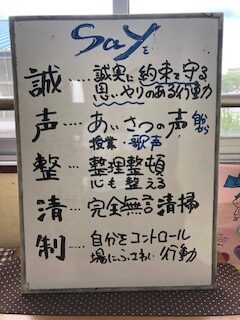 Sayを
誠…誠実に約束を守る
思いやりのある行動
声…あいさつの声
授業・歌声
整…整理整頓
心も整える
清…完全無言清掃
制…自分をコントロール
場にふさわしい行動